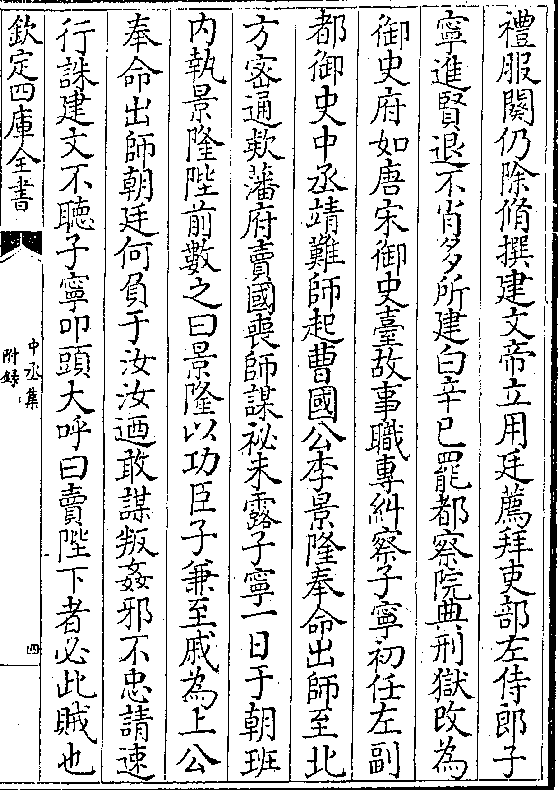 禮服闋仍除脩撰建文帝立用廷薦拜吏部左侍郎子
寧進賢退不肖多所建白辛巳罷都察院典刑獄改為
御史府如唐宋御史臺故事職專糾察子寧初任左副
都御史中丞靖難師起曹國公李景隆奉命出師至北
方宻通欵藩府賣國喪師謀祕未露子寧一日于朝班
内執景隆陛前數之曰景隆以功臣子兼至戚為上公
奉命出師朝廷何負于汝汝迺敢謀叛姦邪不忠請速
行誅建文不聽子寧叩頭大呼曰賣陛下者必此賊也
欽定四庫全書
中丞集
附録
四